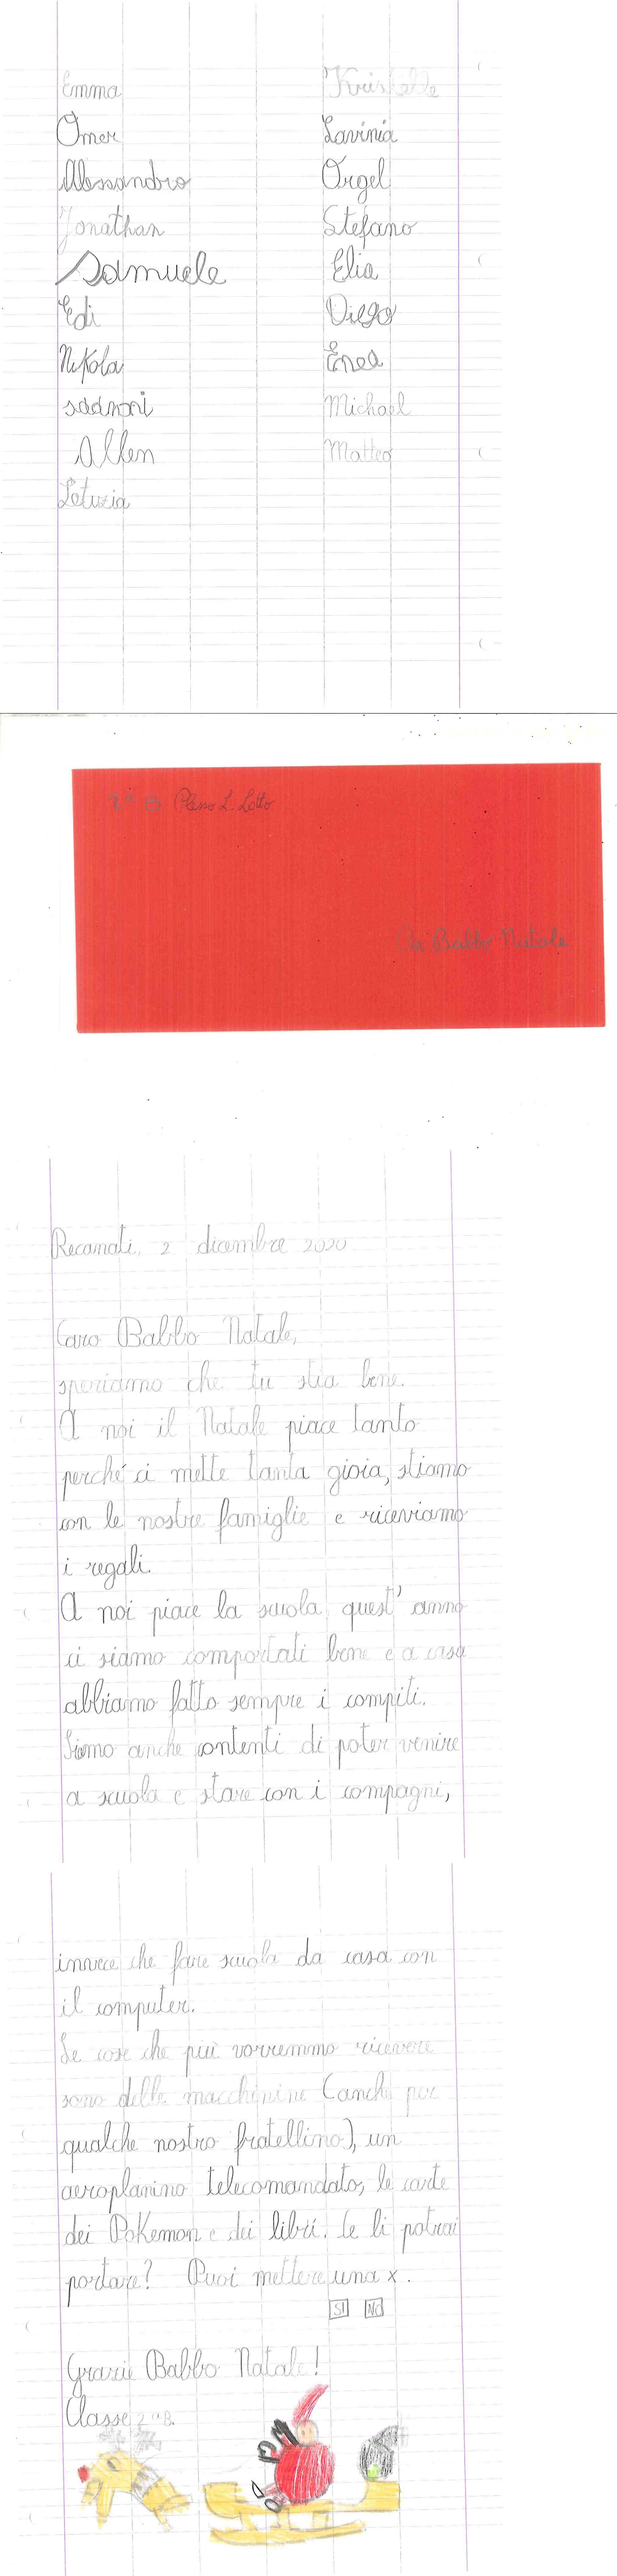 Emma
Omer
Alessandro
Jonathan
Samuele
Edi
Nikola
Allen
Letizia
Lavinia
Orgel
Stefano
Elia
Diego
Enea
Michael
Matteo
2ª B Plesso L. Lotto
A Babbo Natale
Recanati, 2 dicembre 2020
Caro Babbo Natale,
speriamo che tu stia bene.
A noi il Natale piace tanto
perché ci mette tanta gioia, stiamo
con le nostre famiglie e riceviamo
i regali.
A noi piace la scuola, quest'anno
ci siamo comportati bene e a casa
abbiamo fatto sempre i compiti.
Siamo anche contenti di poter venire
a scuola e stare con i compagni,
invece che fare scuola da casa con
il computer.
Le cose che più vorremmo ricevere
sono delle macchinine (anche per
qualche nostro fratellino), un
aeroplanino telecomandato, le carte
dei Pokemon e dei libri. Ce li potrai
portare? Puoi mettere una x.
SI NO
Grazie Babbo Natale!
Classe 2ª B.